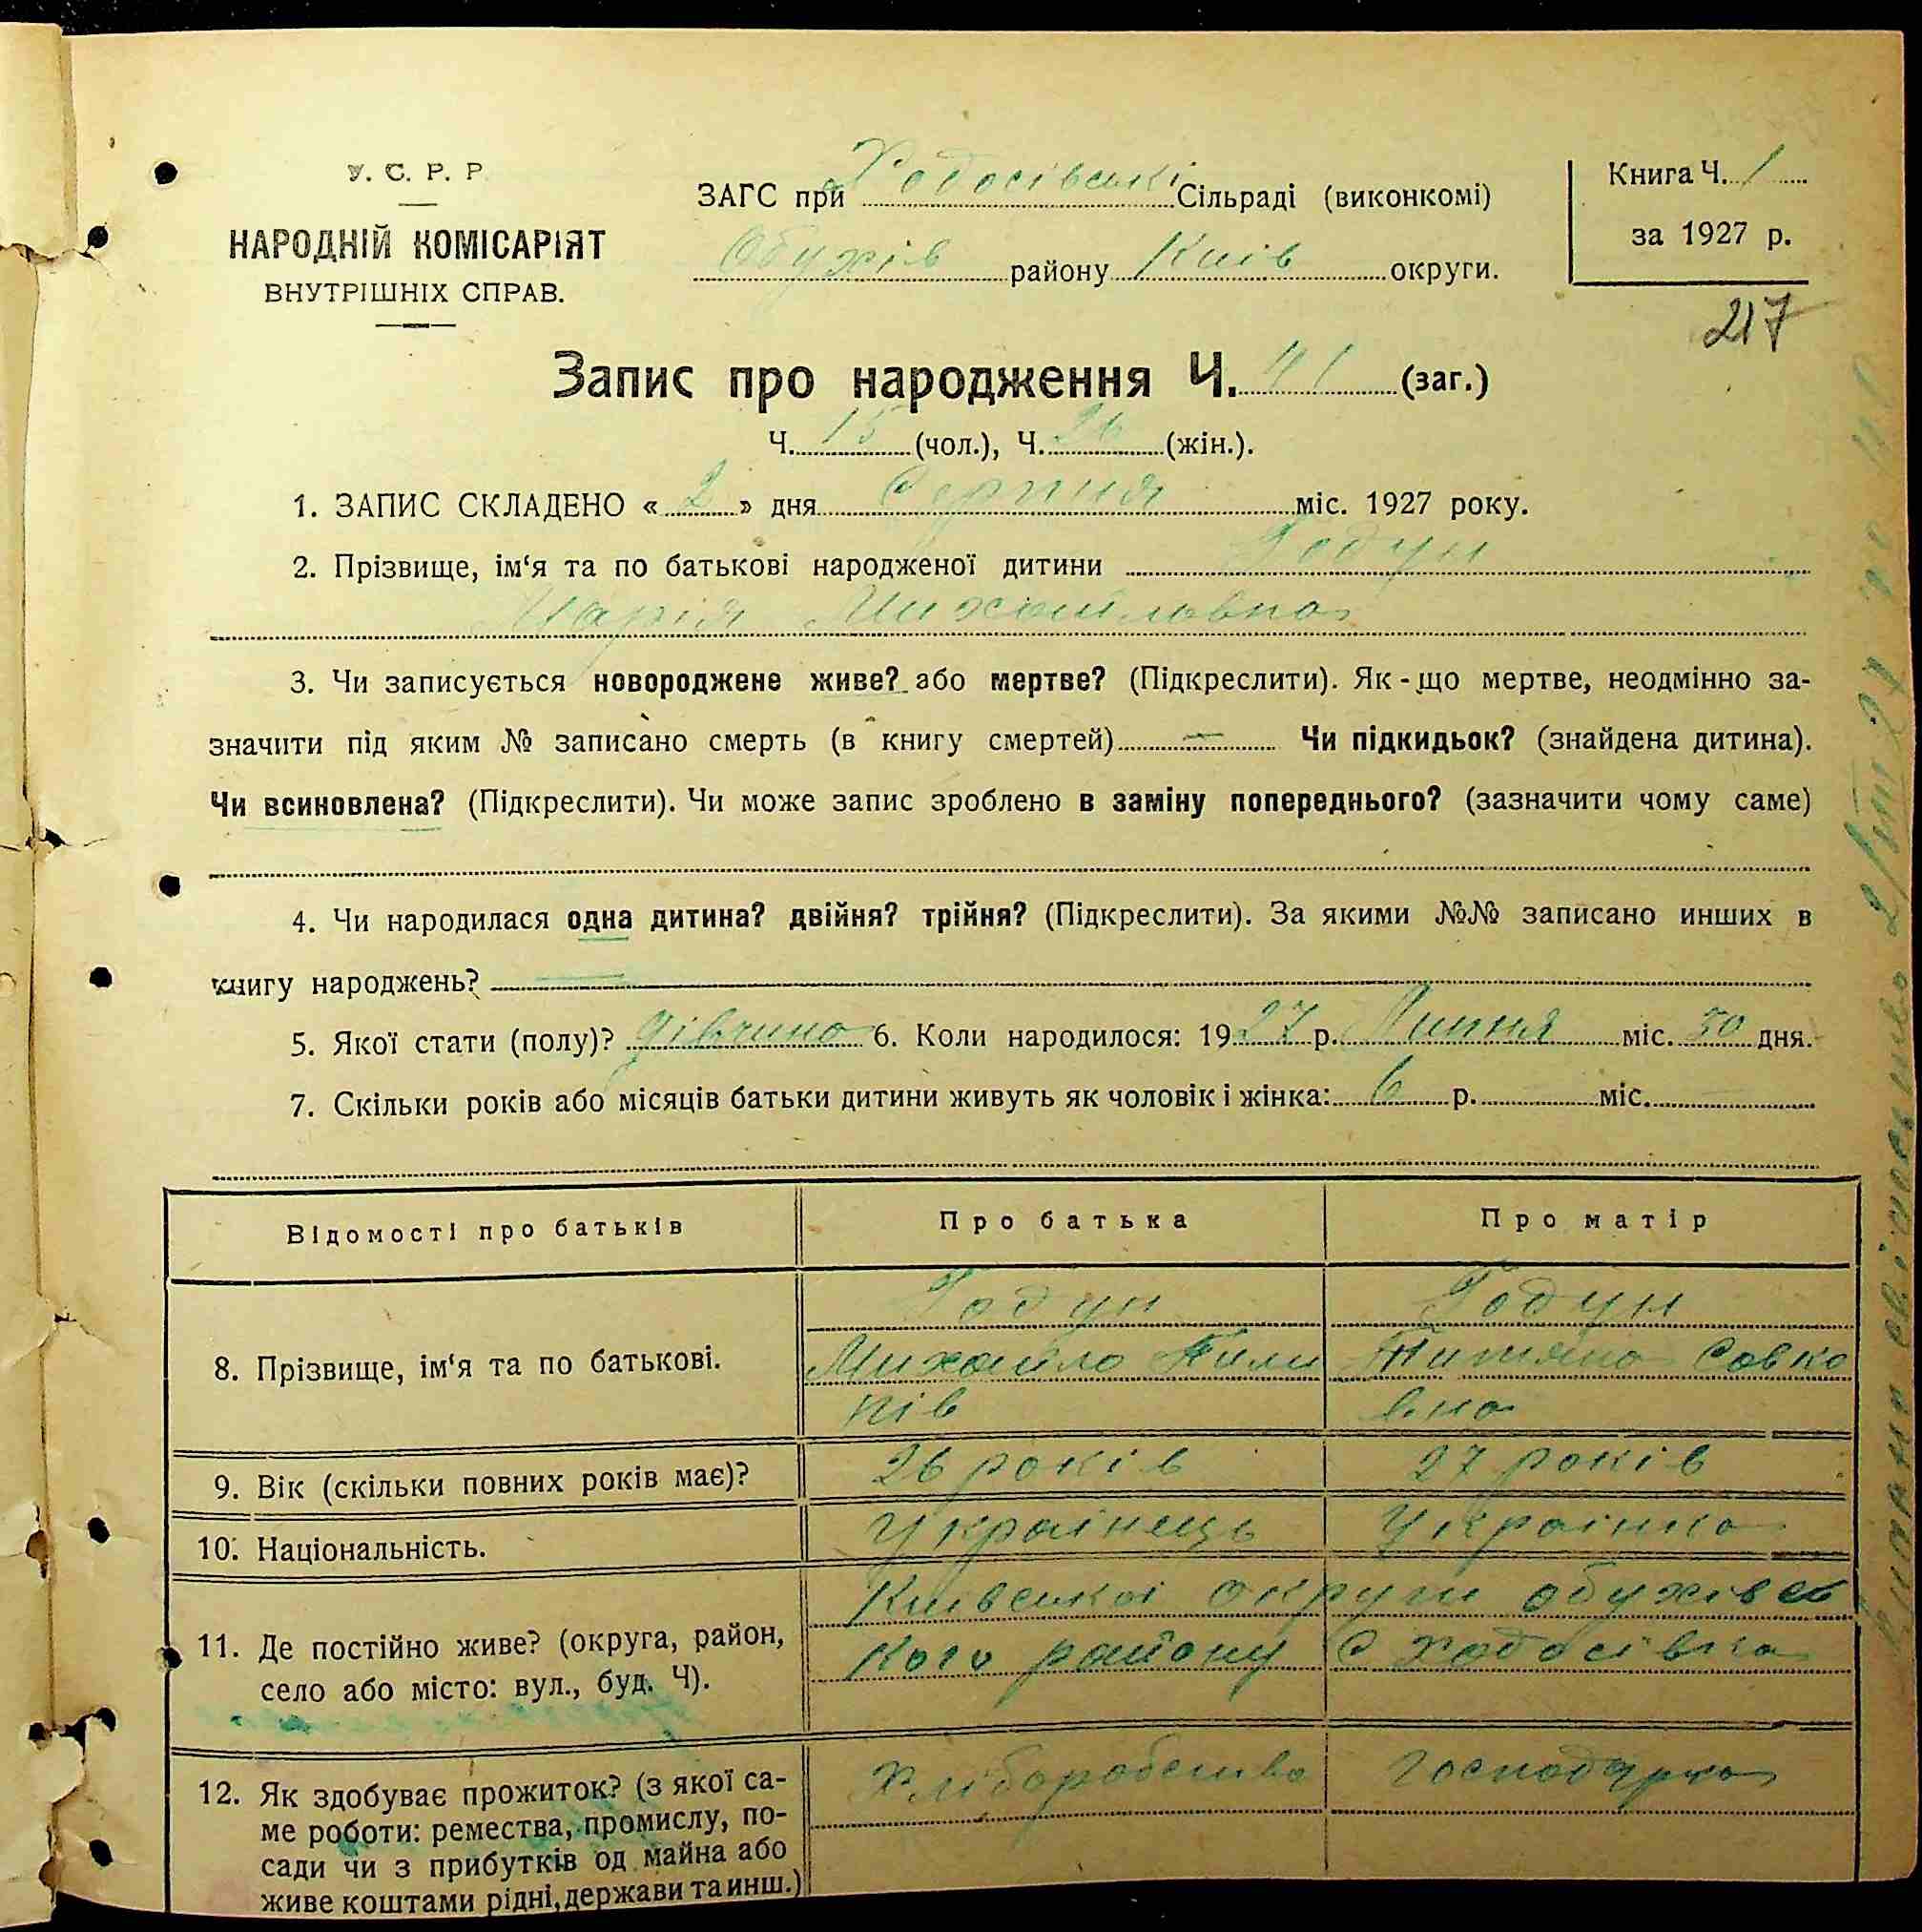 У. С. Р. Р
НАРОДНІЙ КОМІСАРІЯТ
ВНУТРІШНІХ СПРАВ.
ЗАГС при Ходосівські Сільраді (виконкомі)
Обухів району Київ округи.
Книга Ч. 1
за 1927 р.
217
Запис про народження Ч. 41 (заг.)
Ч. 15 (чол.), Ч. 26 (жін.).
1. ЗАПИС СКЛАДЕНО « 2 » дня Серпня міс. 1927 року.
2. Прізвище, ім‘я та по батькові народженої дитини Годун
Марія Михайловна
3. Чи записується новороджене живе? або мертве? (Підкреслити). Як-що мертве, неодмінно за-
значити під яким № записано смерть (в книгу смертей) — Чи підкидьок? (знайдена дитина).
Чи всиновлена? (Підкреслити). Чи може запис зроблено в заміну попереднього? (зазначити чому саме)
4. Чи народилася одна дитина? двійня? трійня? (Підкреслити). За якими №№ записано инших в
книгу народжень? —
5. Якої стати (полу)? дівчина 6. Коли народилося: 1927 р. Липня міс. 30 дня.
7. Скільки років або місяців батьки дитини живуть як чоловік і жінка: 6 р. міс.
Відомості про батьків Про батька Про матір
Годун Годун
8. Прізвище, ім‘я та по батькові. Михайло Пили Титяна Савко
пів вна
9. Вік (скільки повних років має)? 26 років 27 років
10. Національність. Українець Українка
Київської округи обухівсь
11. Де постійно живе? (округа, район, кого району С Ходосівка
село або місто: вул., буд. Ч).
12. Як здобуває прожиток? (з якої са- Хліборобство господарка
ме роботи: ремества, промислу, по-
сади чи з прибутків од майна або
живе коштами рідні, держави та инш.)